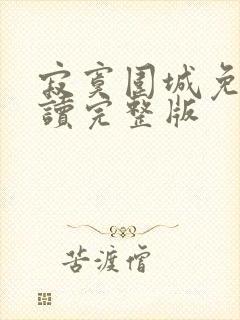 寂寞围城免
讀完整版
苦渡僧